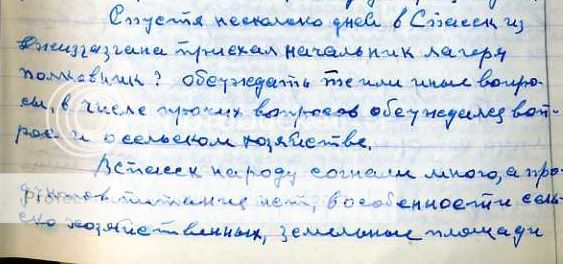 Спустя несколько дней в Спасск из
Джезгазгана приехал начальник лагеря
полковник? обсуждать те или иные вопро-
сы, в числе прочих вопросов обсуждался воп-
рос и о сельском хозяйстве.
В Спасск народу согнали много, а про-
дуктов питания нет, в особенности сель-
ско хозяйственных, земельные площади